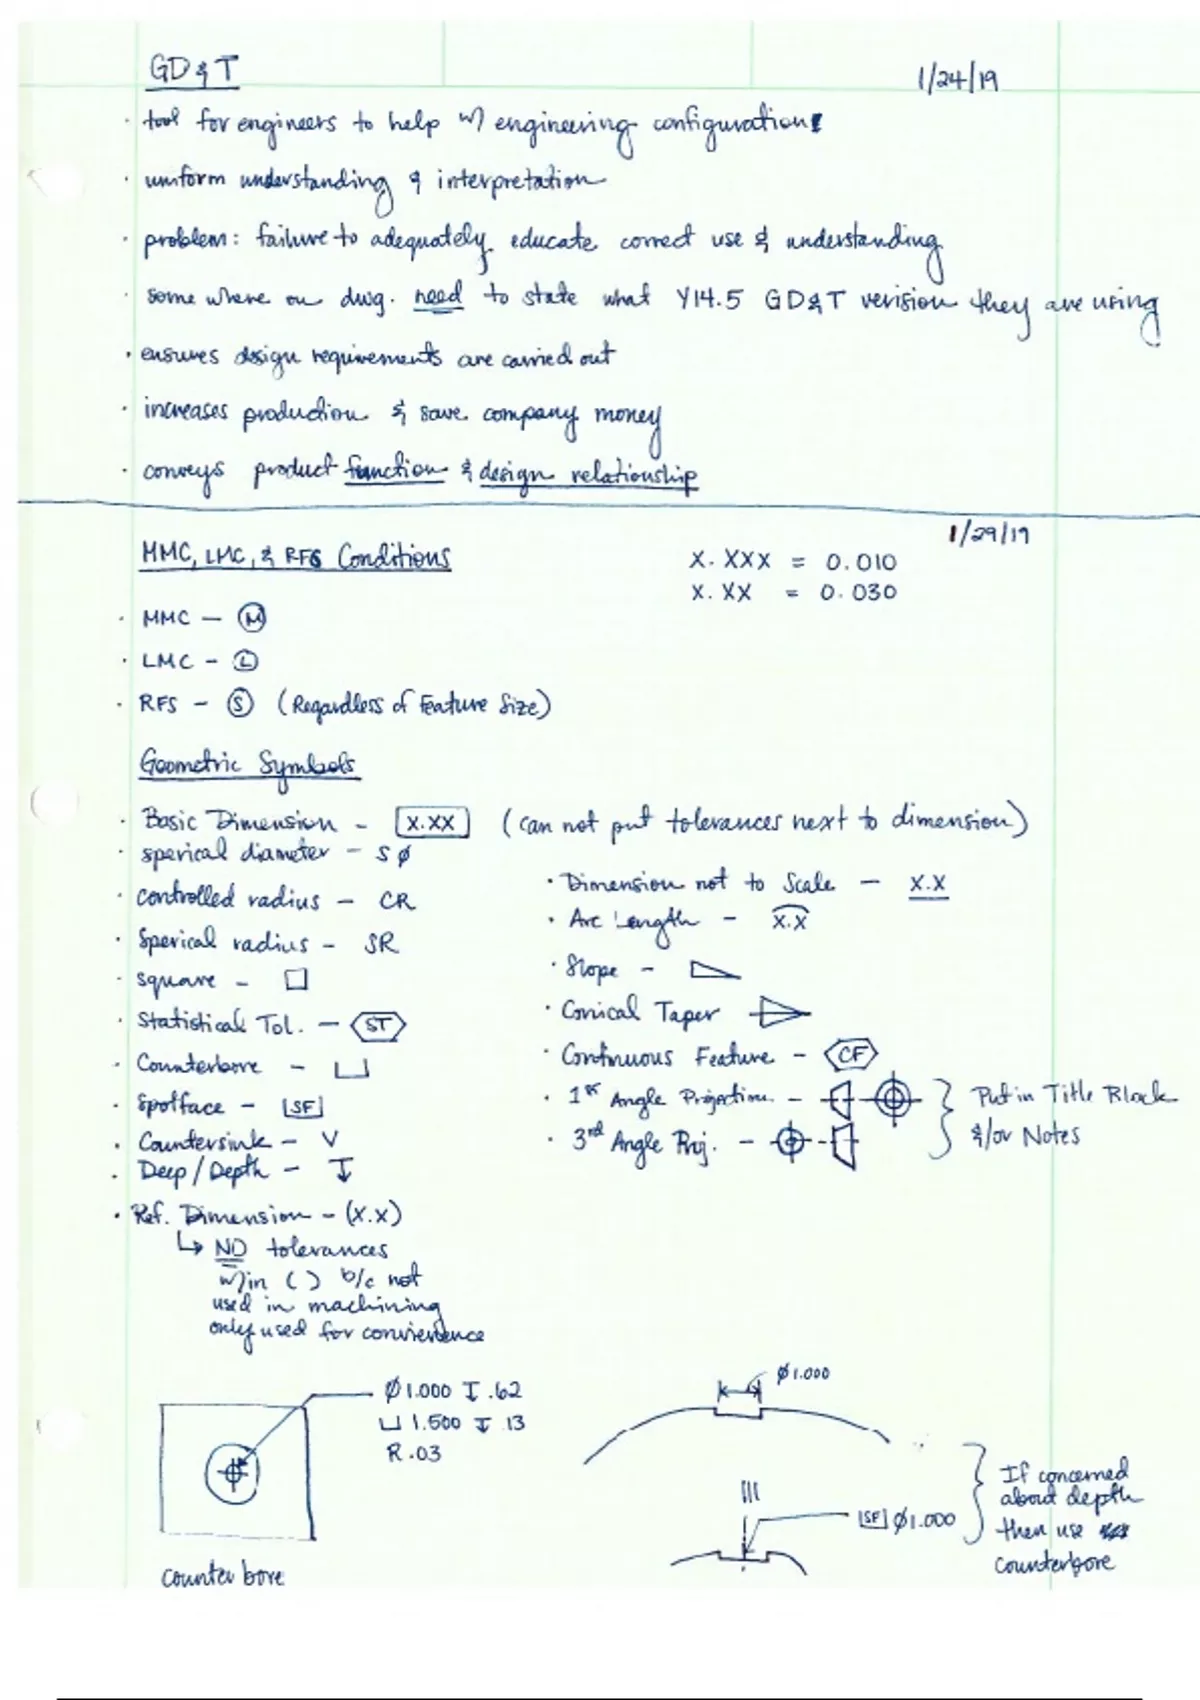 GD&T
1/24/19
· tool for engineers to help w/ engineering configurations
· uniform understanding & interpretation
· problem: failure to adequately educate correct use & understanding
· some where on dwg. need to state what Y14.5 GD&T verision they are using
· ensures design requirements are carried out
· increases production & save company money
· conveys product function & design relationship
1/29/19
MMC, LMC, & RFS Conditions
X.XXX = 0.010
X.XX = 0.030
· MMC – Ⓜ
· LMC – Ⓛ
· RFS – Ⓢ (Regardless of Feature Size)
Geometric Symbols
· Basic Dimension – X.XX (can not put tolerances next to dimension)
· sperical diameter – SØ
· controlled radius – CR
· Sperical radius – SR
· square – □
· Statistical Tol. – ST
· Counterbore – ⌴
· Spotface – SF
· Countersink – V
· Deep/Depth – ↧
· Ref. Dimension – (X.X)
↳ NO tolerances
w/in ( ) b/c not
used in machining
only used for convienience
· Dimension not to Scale – X.X
· Arc Length – X.X
· Slope –
· Conical Taper
· Continuous Feature – CF
· 1st Angle Projection –
· 3rd Angle Proj. –
Put in Title Block
&/or Notes
Ø1.000 ↧ .62
⌴ 1.500 ↧ .13
R .03
counter bore
Ø1.000
SF Ø1.000
If concerned
about depth
then use
counterbore